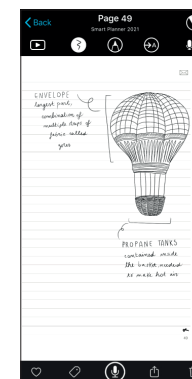 Back
Page 49
Smart Planner 2021
A
A
ENVELOPE
largest part,
combination of
multiple strips of
fabric called
gores
PROPANE TANKS
contained inside
the basket needed
to make hot air